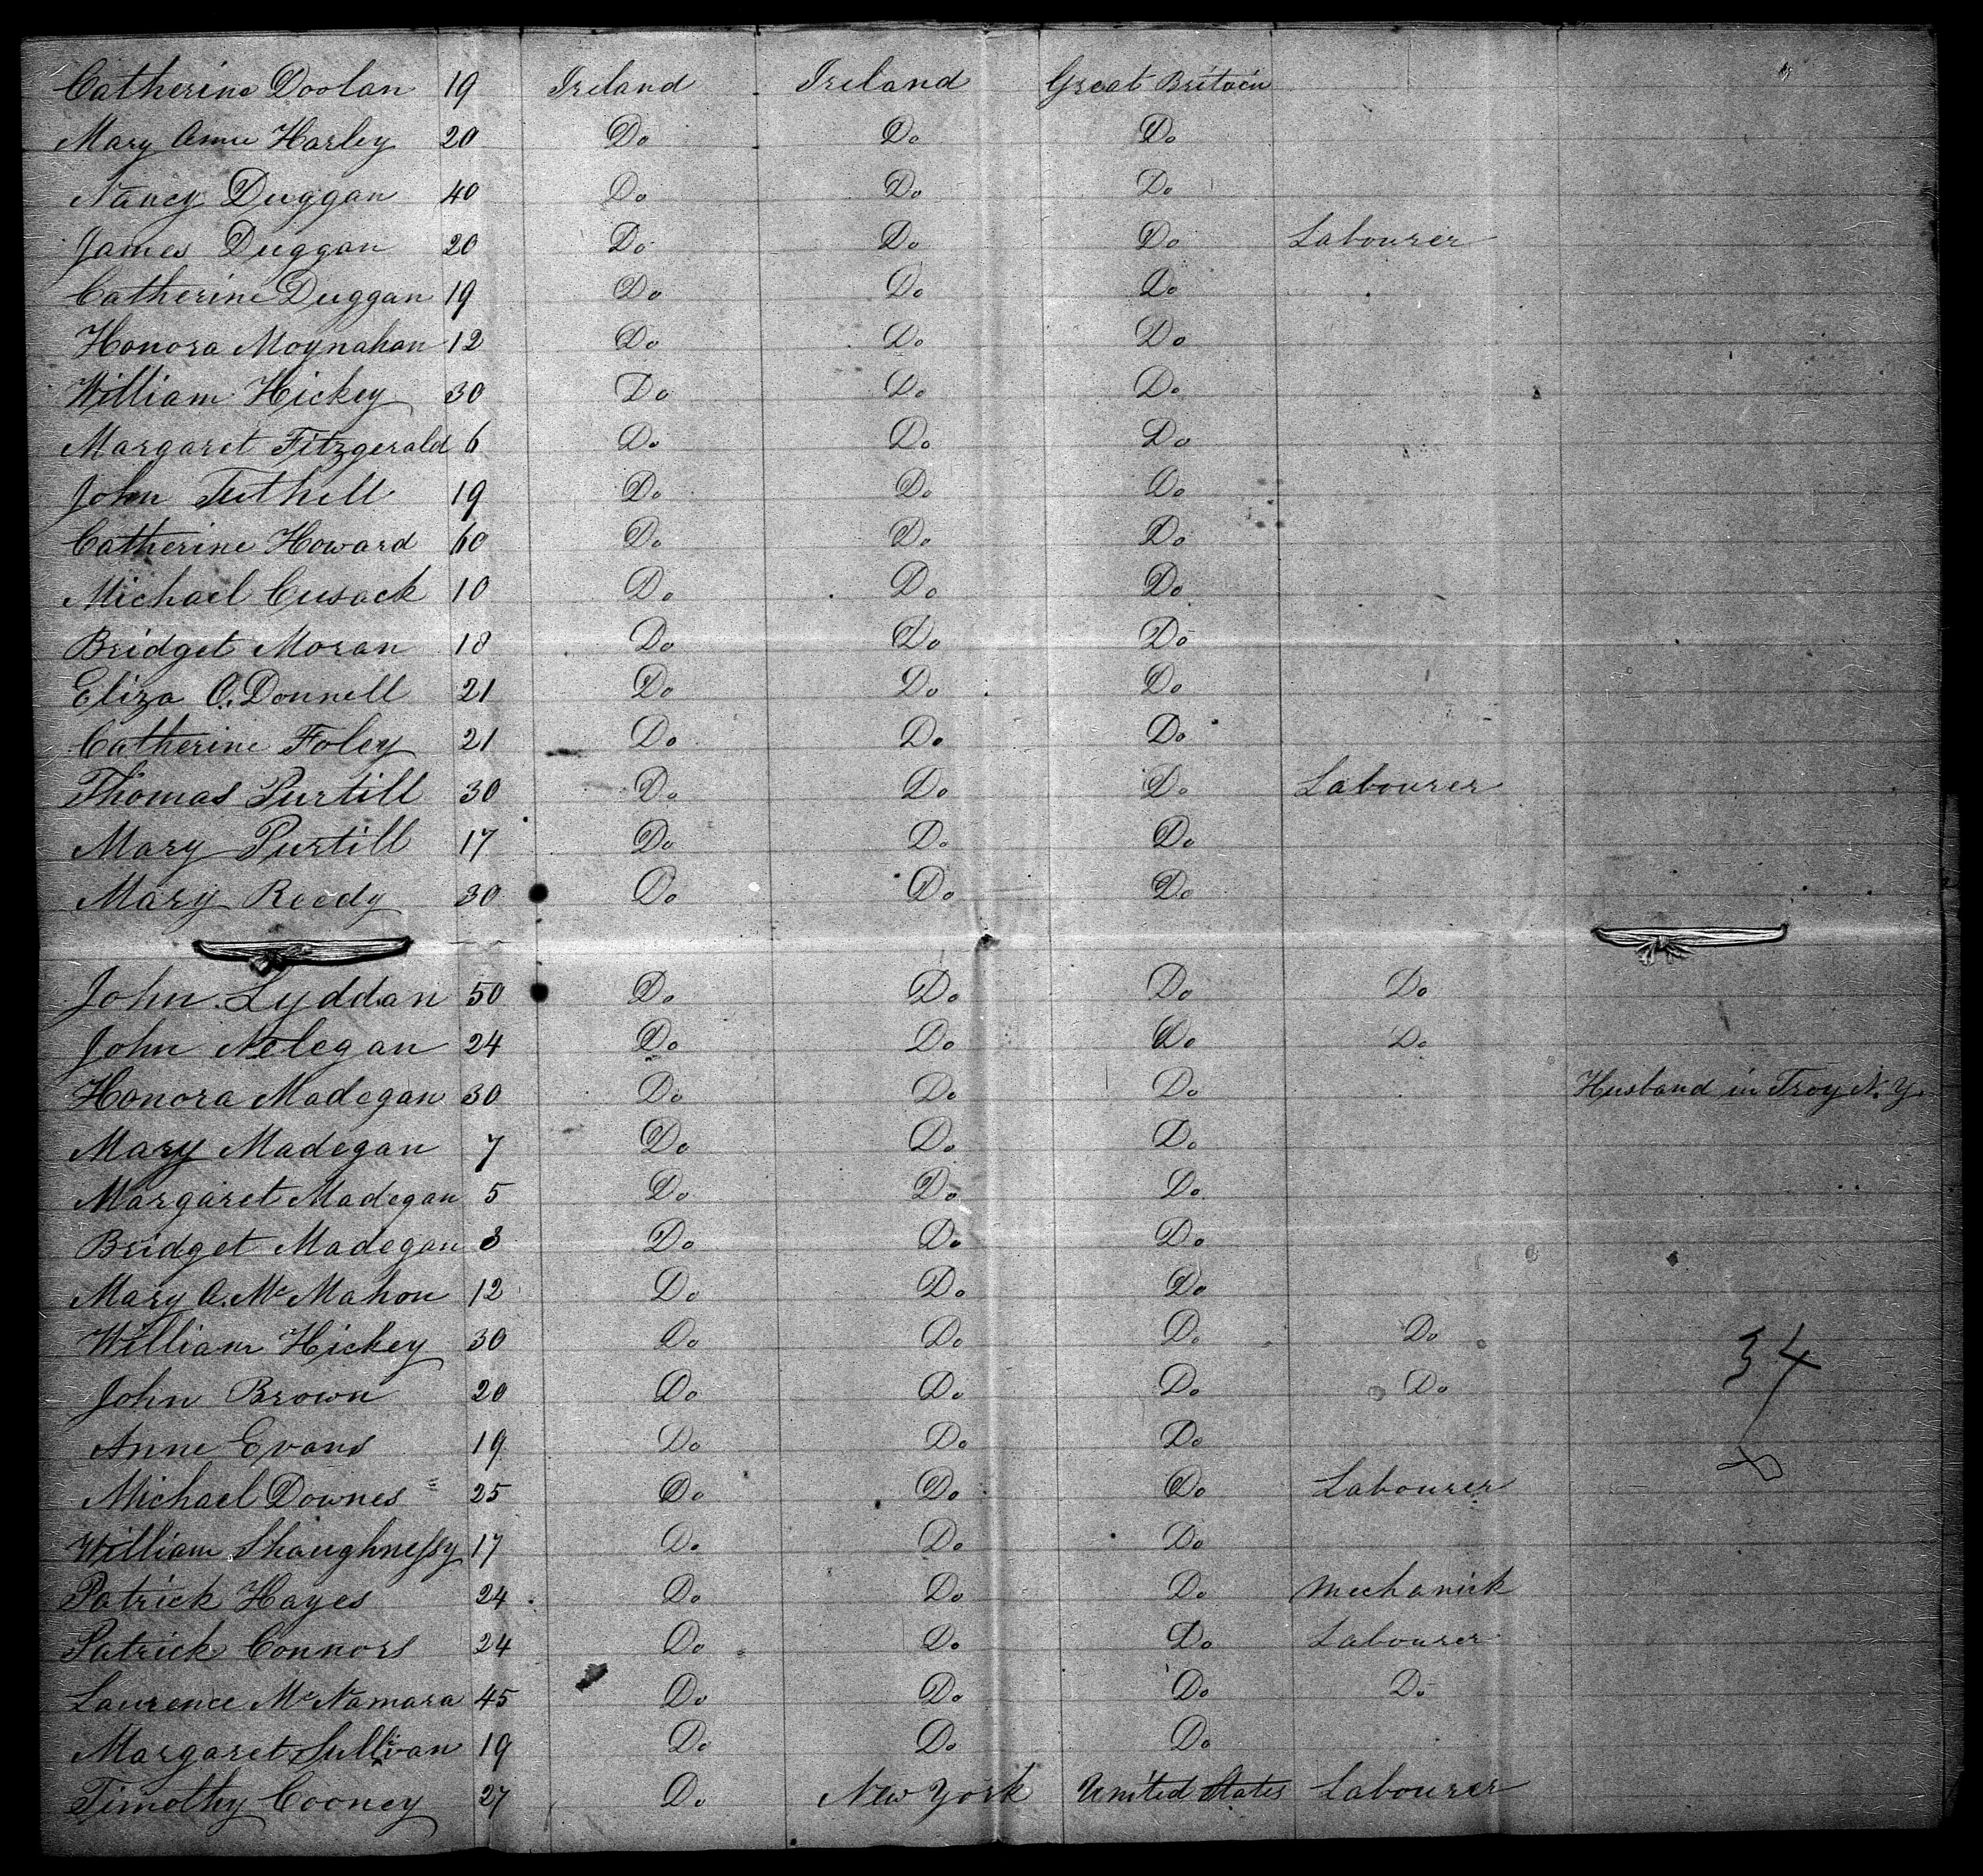 Catherine Doolan 19 Ireland Ireland Great Britain
Mary Anne Harley 20 Do Do Do
Nancy Duggan 40 Do Do Do
James Duggan 20 Do Do Do Labourer
Catherine Duggan 19 Do Do Do
Honora Moynahan 12 Do Do Do
William Hickey 30 Do Do Do
Margaret Fitzgerald 6 Do Do Do
John Tuthill 19 Do Do Do
Catherine Howard 60 Do Do Do
Michael Cusack 10 Do Do Do
Bridget Moran 18 Do Do Do
Eliza O.Donnell 21 Do Do Do
Catherine Foley 21 Do Do Do
Thomas Purtill 30 Do Do Do Labourer
Mary Purtill 17 Do Do Do
Mary Reedy 30 Do Do Do
John Lyddan 50 Do Do Do Do
John Nelegan 24 Do Do Do Do
Honora Madegan 30 Do Do Do Husband in Troy N.Y.
Mary Madegan 7 Do Do Do
Margaret Madegan 5 Do Do Do
Bridget Madegan 3 Do Do Do
Mary A. McMahon 12 Do Do Do
William Hickey 30 Do Do Do Do
34
John Brown 20 Do Do Do Do
Anne Evans 19 Do Do Do
Michael Downes 25 Do Do Do Labourer
William Shaughnessy 17 Do Do Do
Patrick Hayes 24 Do Do Do Mechanick
Patrick Connors 24 Do Do Do Labourer
Laurence McNamara 45 Do Do Do Do
Margaret Sullivan 19 Do Do Do
Timothy Cooney 27 Do New York United States Labourer